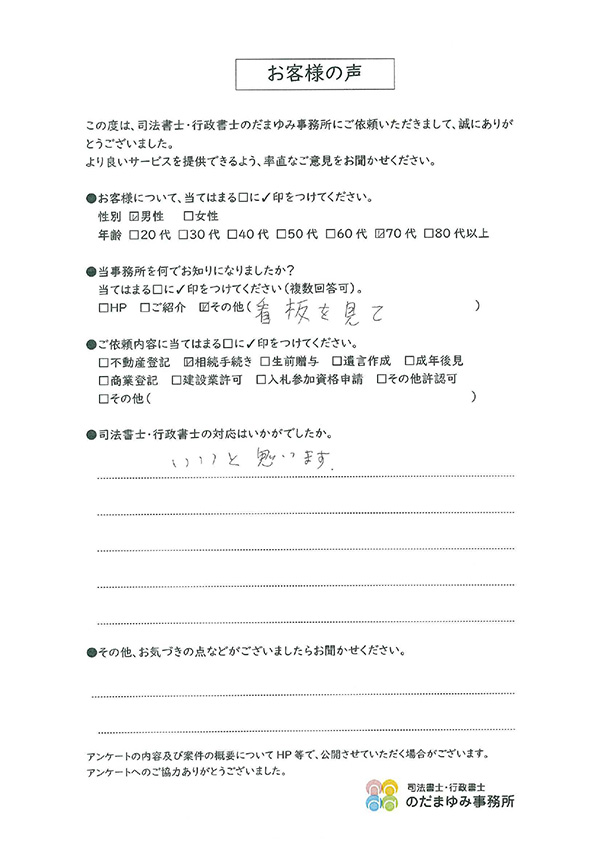 お客様の声
この度は、司法書士・行政書士のだまゆみ事務所にご依頼いただきまして、誠にありが
とうございました。
より良いサービスを提供できるよう、率直なご意見をお聞かせください。
●お客様について、当てはまる□に✓印をつけてください。
性別 ☑男性 □女性
年齢 □20代 □30代 □40代 □50代 □60代 ☑70代 □80代以上
●当事務所を何でお知りになりましたか?
当てはまる□に✓印をつけてください(複数回答可)。
□HP □ご紹介 ☑その他(看板を見て)
●ご依頼内容に当てはまる□に✓印をつけてください。
□不動産登記 ☑相続手続き □生前贈与 □遺言作成 □成年後見
□商業登記 □建設業許可 □入札参加資格申請 □その他許認可
□その他( )
●司法書士・行政書士の対応はいかがでしたか。
いいと思います.
●その他、お気づきの点などがございましたらお聞かせください。
アンケートの内容及び案件の概要についてHP等で、公開させていただく場合がございます。
アンケートへのご協力ありがとうございました。
司法書士・行政書士
のだまゆみ事務所